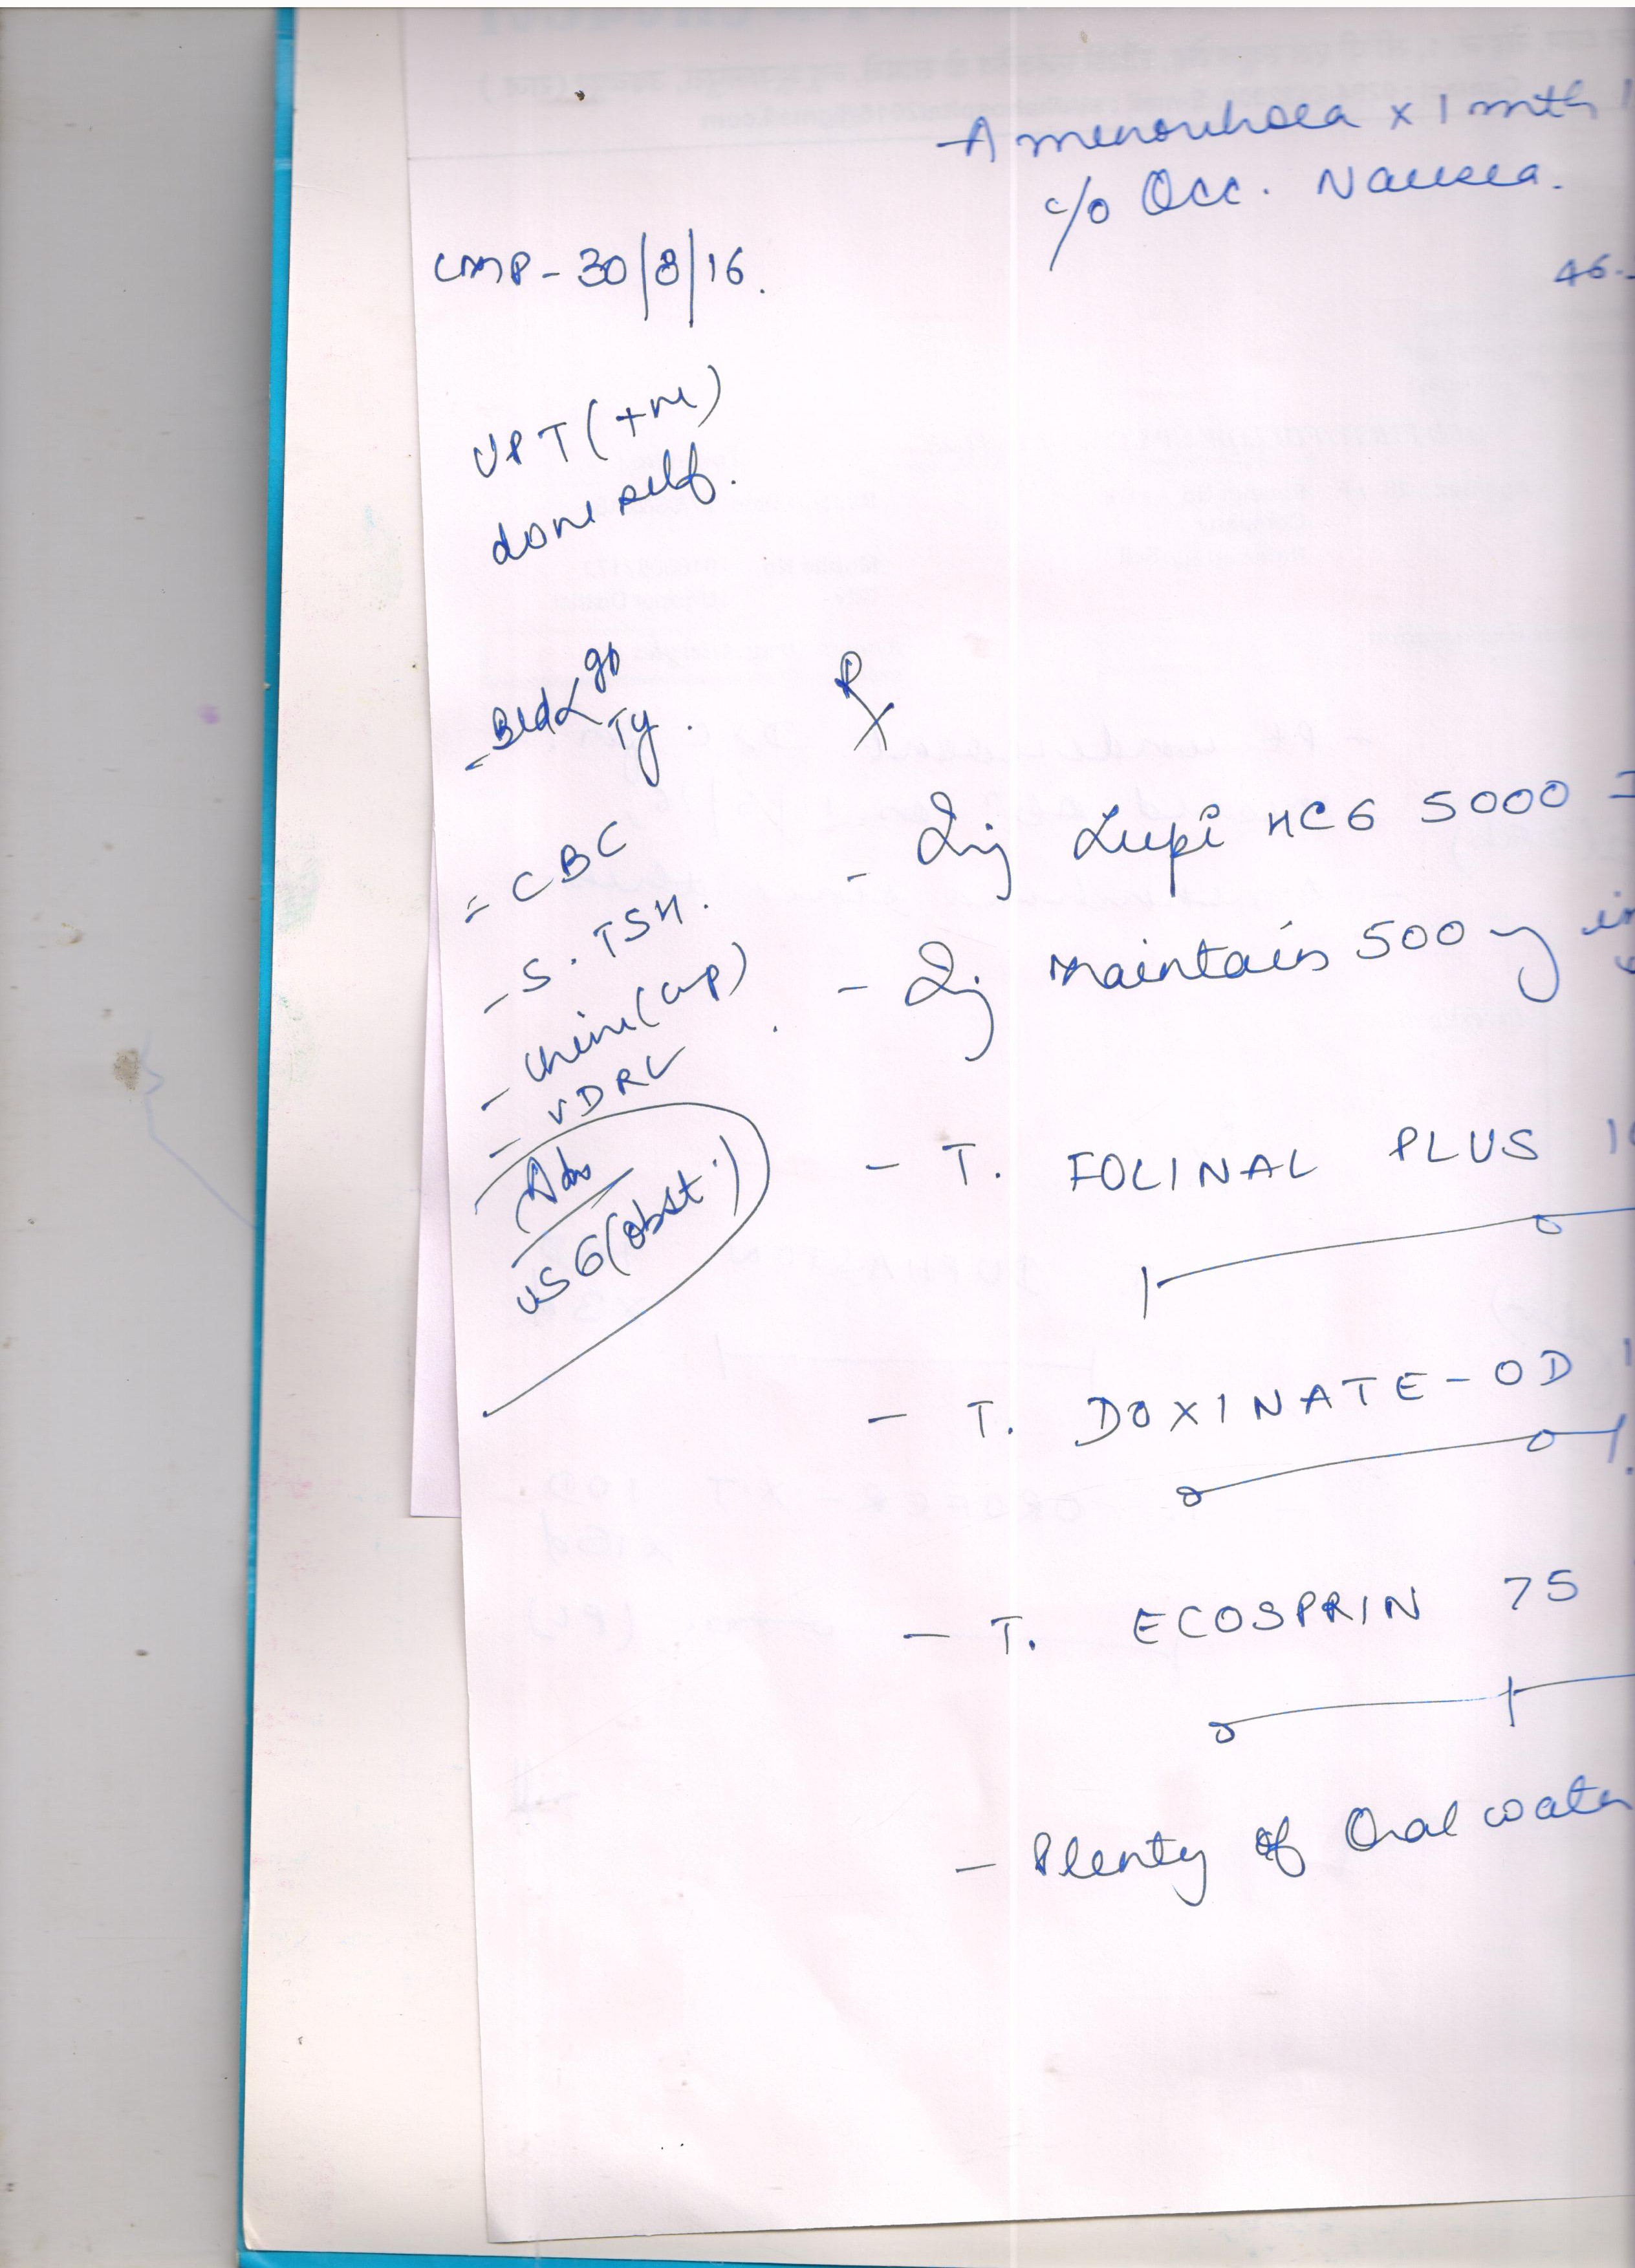 Amenorrhoea x 1 mth
c/o Occ. Nausea.
46.
LMP - 30/8/16.
UPT (+ve)
done self.
- Bld < gp
Ty.
- CBC
- S. TSH.
- Urine (cyp)
- VDRL
Adv
USG (obst.)
Rx
- Inj Lupi HCG 5000
- Inj Maintain 500
- T. FOLINAL PLUS
- T. DOXINATE-OD
- T. ECOSPRIN 75
- Plenty of Oral water